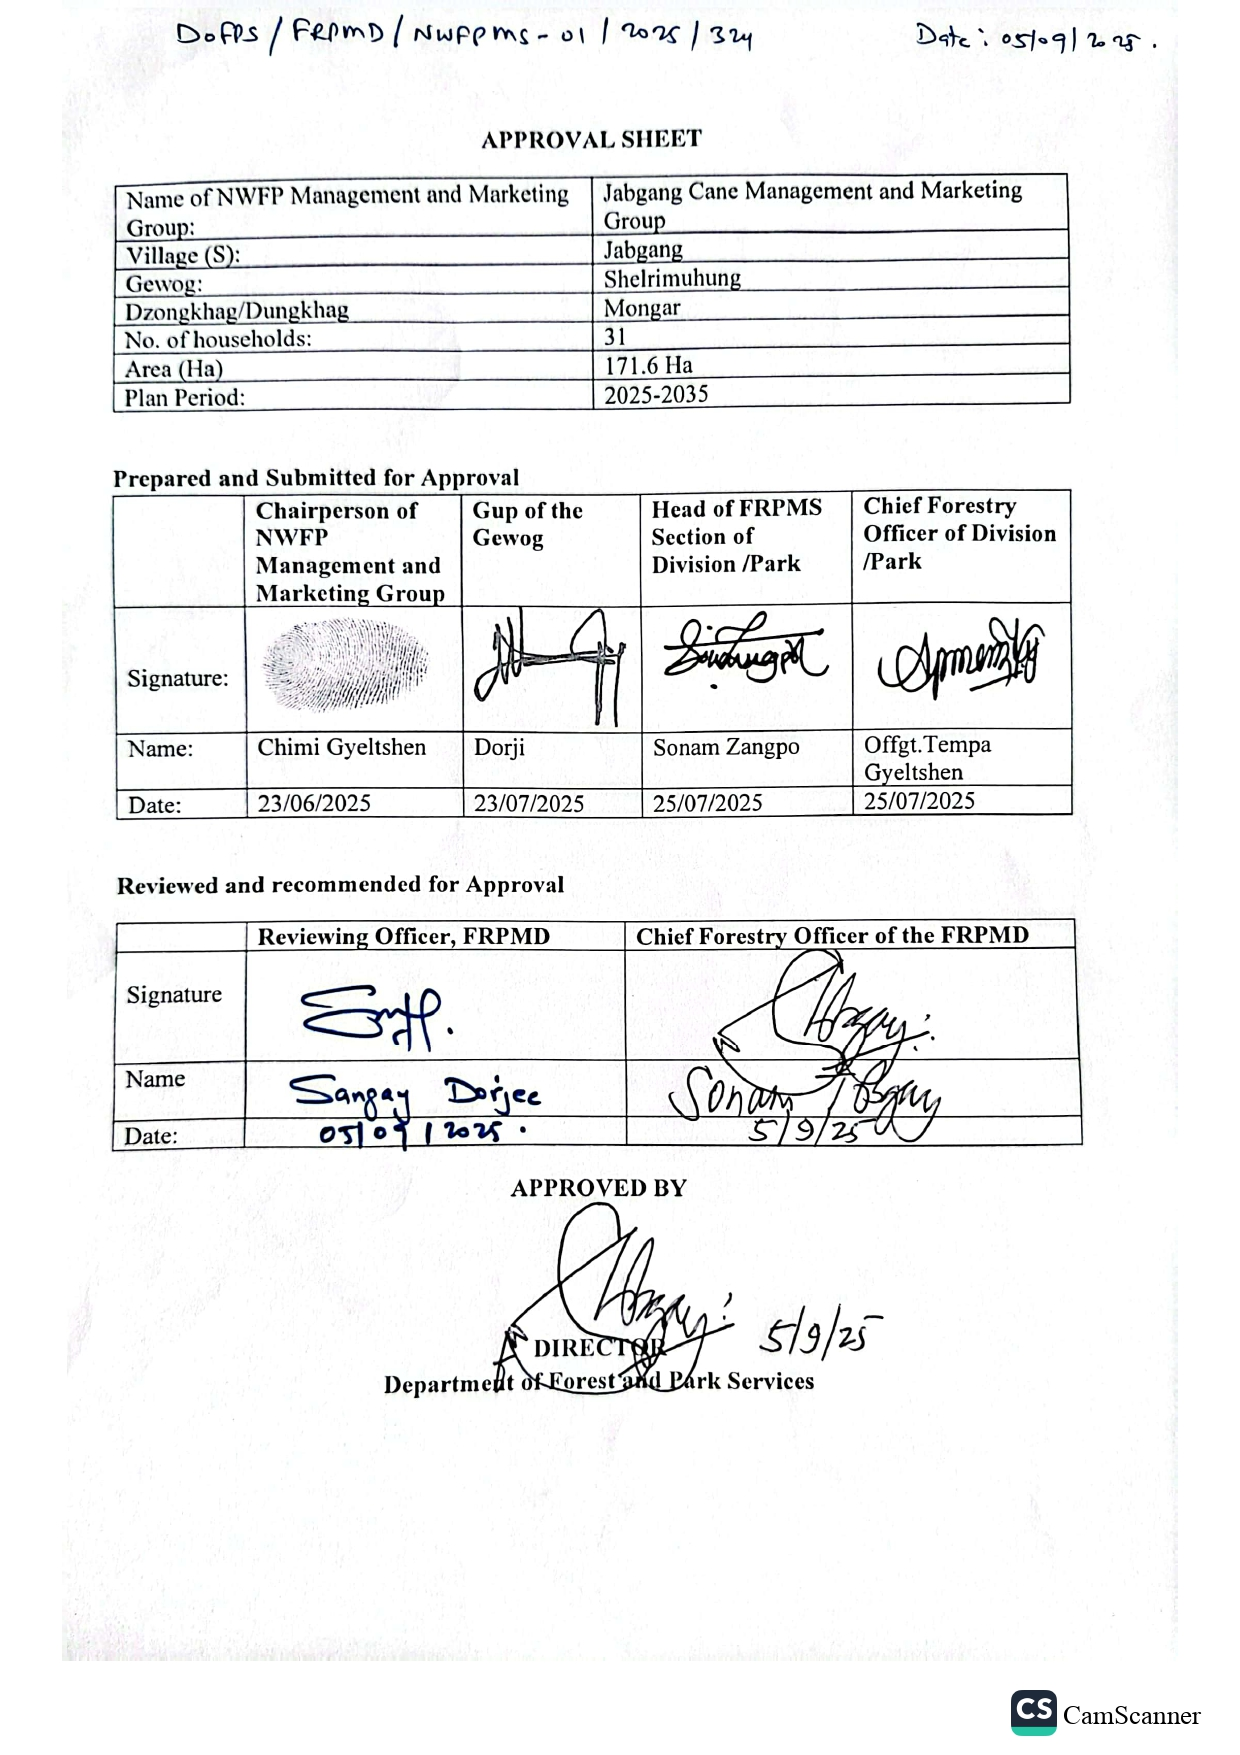 DoFPS / FRPMD / NWFPMS - 01 / 2025 / 324 Date: 05/09/2025.
APPROVAL SHEET
Name of NWFP Management and Marketing Group: Jabgang Cane Management and Marketing Group
Village (S): Jabgang
Gewog: Shelrimuhung
Dzongkhag/Dungkhag Mongar
No. of households: 31
Area (Ha) 171.6 Ha
Plan Period: 2025-2035
Prepared and Submitted for Approval
Chairperson of NWFP Management and Marketing Group Gup of the Gewog Head of FRPMS Section of Division /Park Chief Forestry Officer of Division /Park
Signature:
Name: Chimi Gyeltshen Dorji Sonam Zangpo Offgt.Tempa Gyeltshen
Date: 23/06/2025 23/07/2025 25/07/2025 25/07/2025
Reviewed and recommended for Approval
Reviewing Officer, FRPMD Chief Forestry Officer of the FRPMD
Signature
Name Sangay Dorjee Sonam
Date: 05/09/2025. 5/9/25
APPROVED BY
5/9/25
DIRECTOR
Department of Forest and Park Services
CS CamScanner